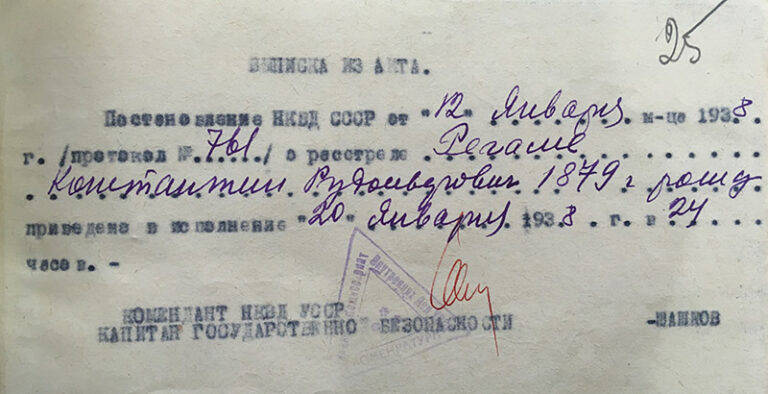 25
ВЫПИСКА ИЗ АКТА.
Постановление НКВД СССР от "12" Января м-це 1938.
г. /протокол № 761/ о расстреле Регаме
Константин Рудольфович 1879 г рожд
приведено в исполнение "20" Января 1938. г. в 24
часов. -
КОМЕНДАНТ НКВД УССР
КАПИТАН ГОСУДАРСТВЕННОЙ БЕЗОПАСНОСТИ -ШАШКОВ